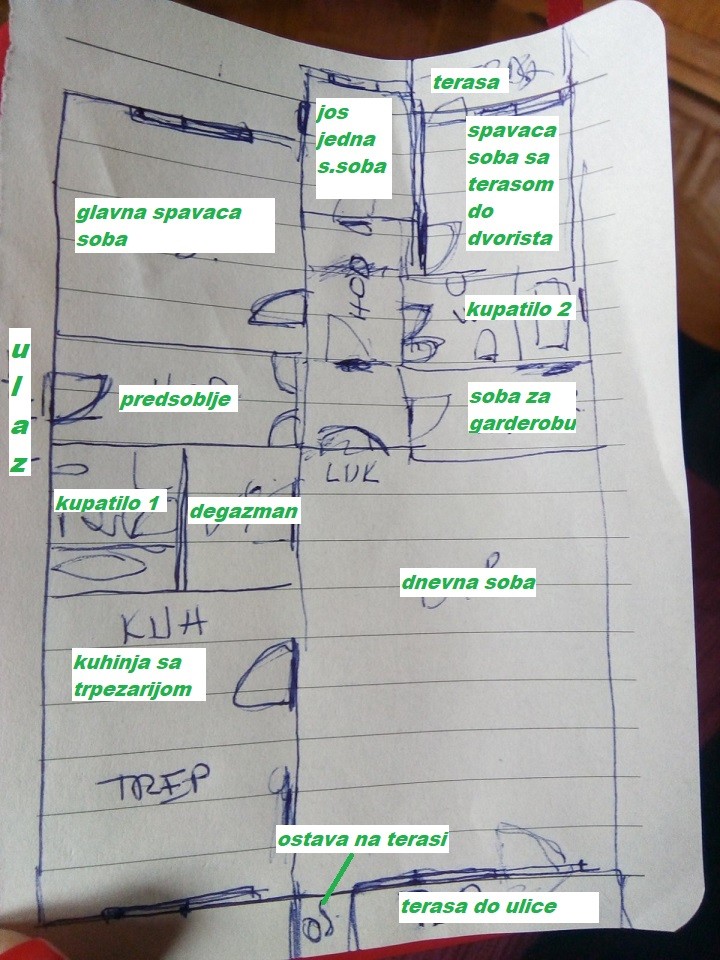 terasa
jos
jedna
s.soba
spavaca
soba sa
terasom
do
dvorista
glavna spavaca
soba
HOD
kupatilo 2
u
l
a
z
predsoblje
soba za
garderobu
LUK
kupatilo 1
degazman
dnevna soba
KUH
kuhinja sa
trpezarijom
TREP
ostava na terasi
OS.
terasa do ulice